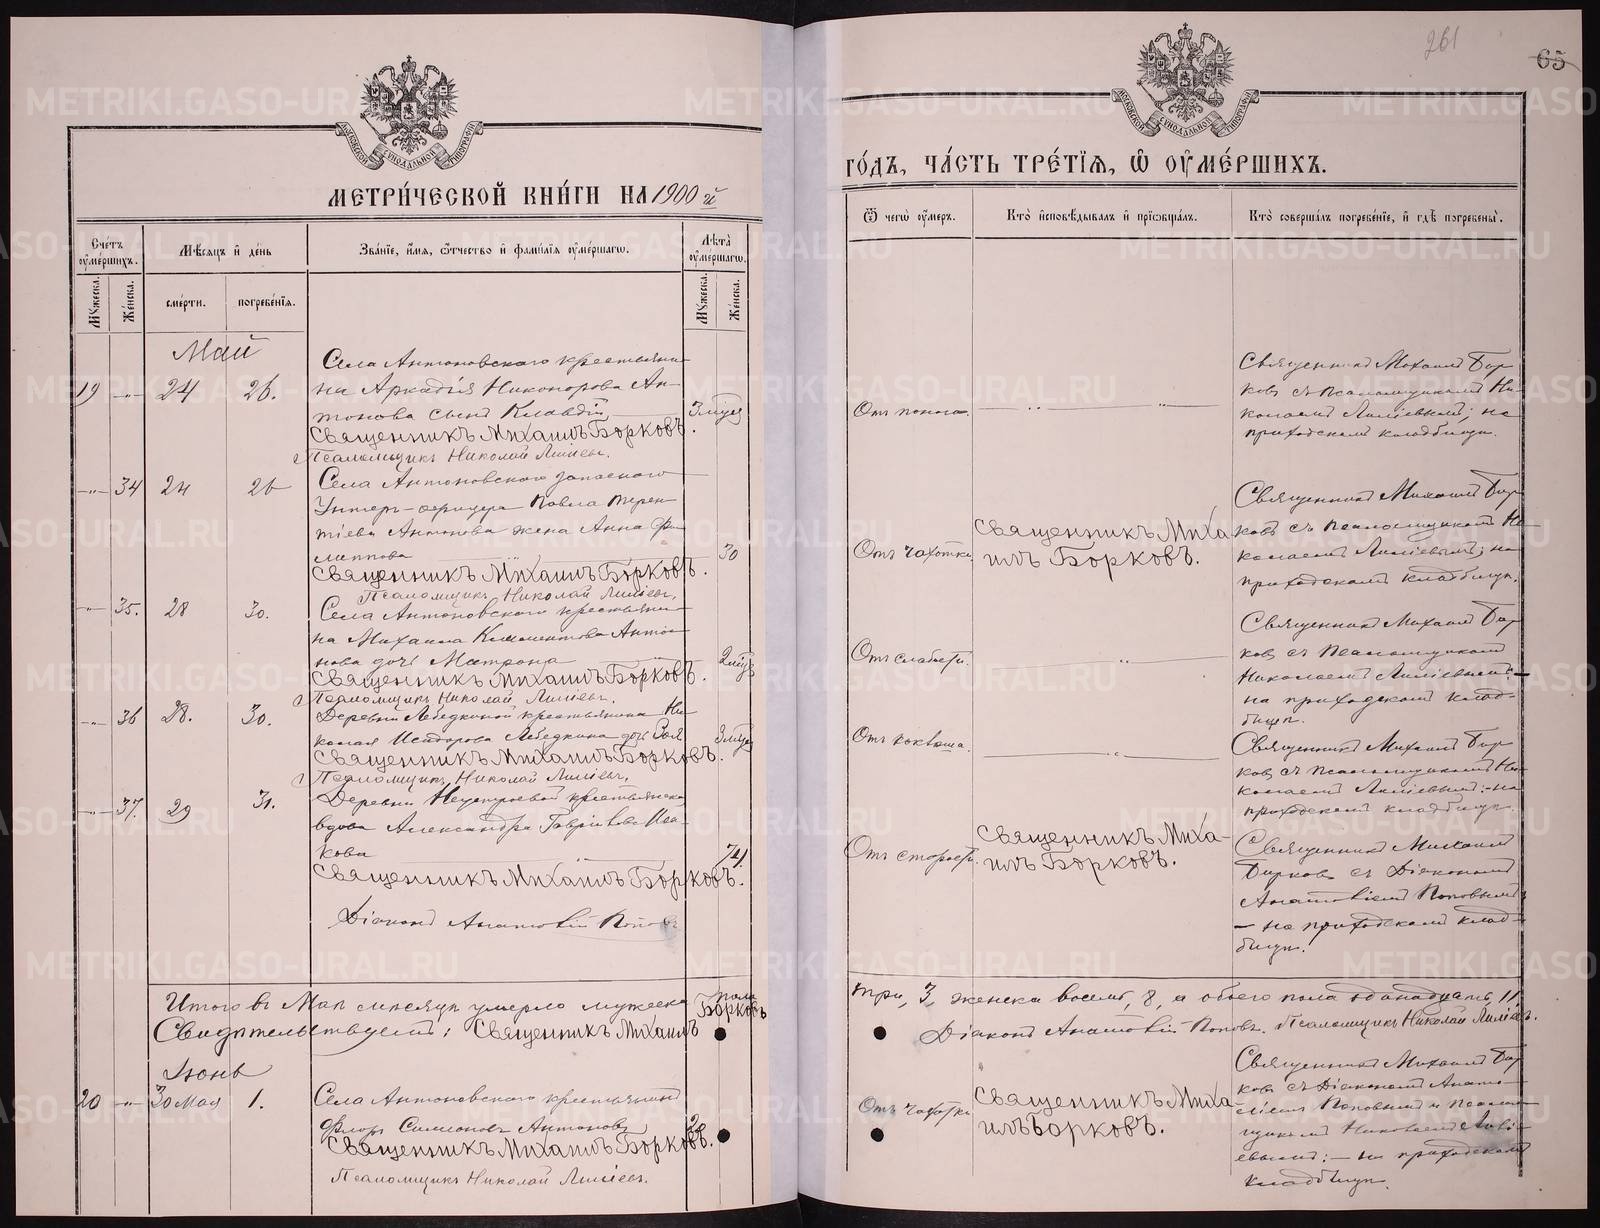 261
65
МОСКОВСКОЙ СѴНОДАЛЬНОЙ ТИПОГРАФІИ
МОСКОВСКОЙ СѴНОДАЛЬНОЙ ТИПОГРАФІИ
МЕТРИ́ЧЕСКОЙ КНИ́ГИ НА 1900 й
ГО́ДЪ, ЧА́СТЬ ТРЕ́ТІѦ, Ѿ ОУ҆МЕ́РШИХЪ.
Сче́тъ оу҆ме́ршихъ.
Мѣ́сѧцъ и҆ де́нь
Зва́нїе, и҆́мѧ, ѻ҆́тчество и҆ фами́лїѧ оу҆ме́ршагѡ.
Лѣ́та оу҆ме́ршагѡ.
Му́жеска.
Же́нска.
сме́рти.
погребе́нїѧ.
Му́жеска.
Же́нска.
Ѿ чегѡ̀ оу҆́меръ.
Кто̀ и҆сповѣ́дывалъ и҆ прїѡбща́лъ.
Кто̀ соверша́лъ погребе́нїе, и҆ гдѣ̀ погребены̀.
Май
19 -"- 24 26.
Села Антоновскаго крестьяни-
на Аркадія Никонорова Ан-
тонова сынъ Клавдій
3 мѣсц
Священникъ Михаилъ Борковъ.
Псаломщикъ Николай Лиліевъ.
Отъ поноса.
Священникъ Михаилъ Бор-
ковъ съ Псаломщикомъ Ни-
колаемъ Лиліевымъ; на
приходскомъ кладбищѣ.
-"- 34 24 26
Села Антоновскаго запаснаго
Унтеръ-офицера Павла Терен-
тіева Антонова жена Анна Фи-
липпова
30
Священникъ Михаилъ Борковъ.
Псаломщикъ Николай Лиліевъ.
Отъ чахотки.
Священникъ Миха-
илъ Борковъ.
Священникъ Михаилъ Бор-
ковъ съ Псаломщикомъ Ни-
колаемъ Лиліевымъ; на
приходскомъ кладбищѣ.
-"- 35. 28 30.
Села Антоновскаго крестьяни-
на Михаила Климентова Антоно-
нова дочь Матрона
2 мѣсц
Священникъ Михаилъ Борковъ.
Псаломщикъ Николай Лиліевъ.
Отъ слабости.
Священникъ Михаилъ Бор-
ковъ съ Псаломщикомъ
Николаемъ Лиліевымъ:-
на приходскомъ клад-
бищѣ.
-"- 36 28. 30.
Деревни Лебедкиной крестьянина Ни-
колая Исидорова Лебедкина дочь Зоя
3 мѣсц
Священникъ Михаилъ Борковъ.
Псаломщикъ Николай Лиліевъ.
Отъ коклюша.
Священникъ Михаилъ Бор-
ковъ съ Псаломщикомъ Ни-
колаемъ Лиліевымъ:-на
приходскомъ кладбищѣ.
-"- 37. 29 31.
вдова Александра Гаврилова Иса-
кова
74.
Священникъ Михаилъ Борковъ.
Діаконъ Анатолій Поповъ
Отъ старости.
Священникъ Миха-
илъ Борковъ.
Священникъ Михаилъ
Борковъ съ Діакономъ
Анатоліемъ Поповымъ;
- на приходскомъ клад-
бищѣ.
Итого въ Маѣ мѣсяцѣ умерло мужеска пола
три, 3, женска восемь, 8, а обоего пола одинадцать, 11.
Свидѣтельствуетъ: Священникъ Михаилъ Борковъ
Діаконъ Анатолій Поповъ. Псаломщикъ Николай Лиліевъ.
Іюнь
20 -"- 30 мая 1.
Села Антоновскаго крестьянинъ
Флоръ Симеоновъ Антоновъ
Священникъ Михаилъ Борковъ.
Псаломщикъ Николай Лиліевъ.
Отъ чахотки
Священникъ Миха-
илъ Борковъ.
Священникъ Михаилъ Бор-
ковъ съ Діакономъ Анато-
ліемъ Поповымъ и Псалом-
щикомъ Николаемъ Лилі-
евымъ:- на приходскомъ
кладбищѣ.
METRIKI.GASO-URAL.RU